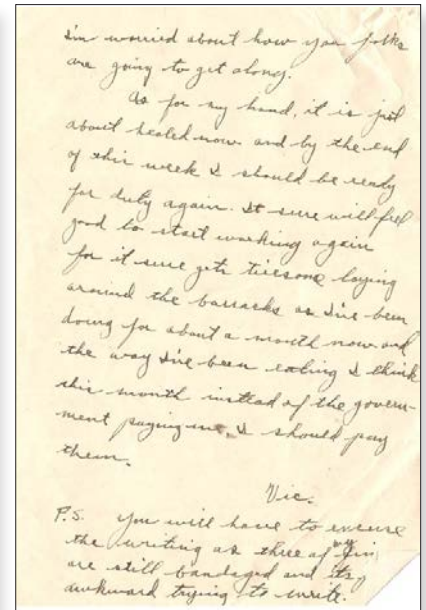 I'm worried about how you folks
are going to get along.
As for my hand, it is just
about healed now and by the end
of this week I should be ready
for duty again. It sure will feel
good to start working again
for it sure gets tiresome laying
around the barracks as I've been
doing for about a month now and
the way I've been eating I think
this month instead of the govern-
ment paying me, I should pay
them.
Vic.
P.S. You will have to excuse
the writing as three of my
are still bandaged and its
awkward trying to write.